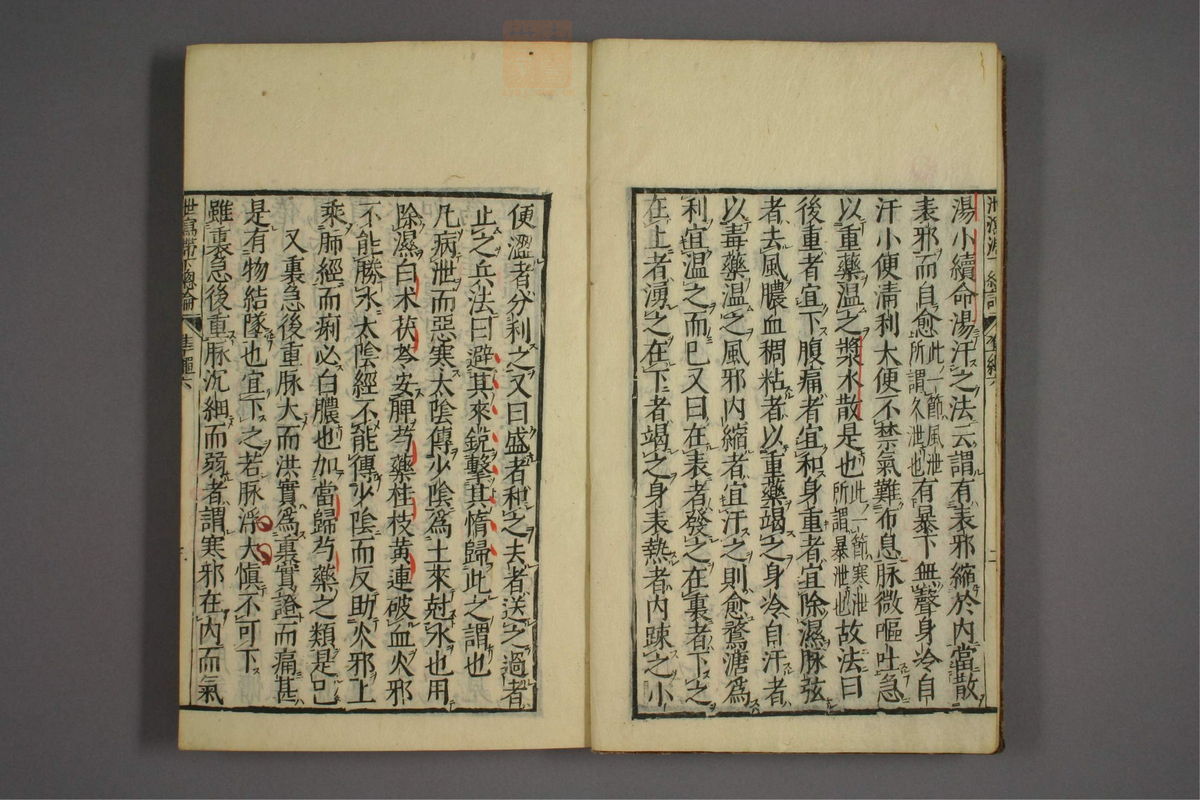 湯小續命湯汗之法云謂有表邪縮於内當散
表邪而自愈此一節風泄所謂久泄也有暴下無聲身冷自
汗小便清利大便不禁氣難布息脉微嘔吐急
以重藥温之漿水散是也此一節寒泄所謂暴泄也故法曰
後重者宜下腹痛者宜和身重者宜除濕脉弦
者去風膿血稠粘者以重藥竭之身冷自汗者
以毒藥温之風邪内縮者宜汗之則愈鶩溏為
利宜温之而已又曰在表者發之在裏者下之
在上者湧之在下者竭之身表熱者内踈之小
便澀者分利之又曰盛者和之去者送之過者
止之兵法曰避其來鋭擊其惰歸此之謂也
凡病泄而惡寒太陰傳少陰為土來尅水也用
除濕白术茯苓安脾芍藥桂枝黄連破血火邪
不能勝水太陰經不能傳少陰而反助火邪上
乘肺經而痢必白膿也加當歸芍藥之類是已
又裏急後重脉大而洪實為裏實證而痛甚
是有物結墜也宜下之若脉浮大慎不可下
雖裏急後重脉沉細而弱者謂寒邪在内而氣
世寫滯下總論
準繩六